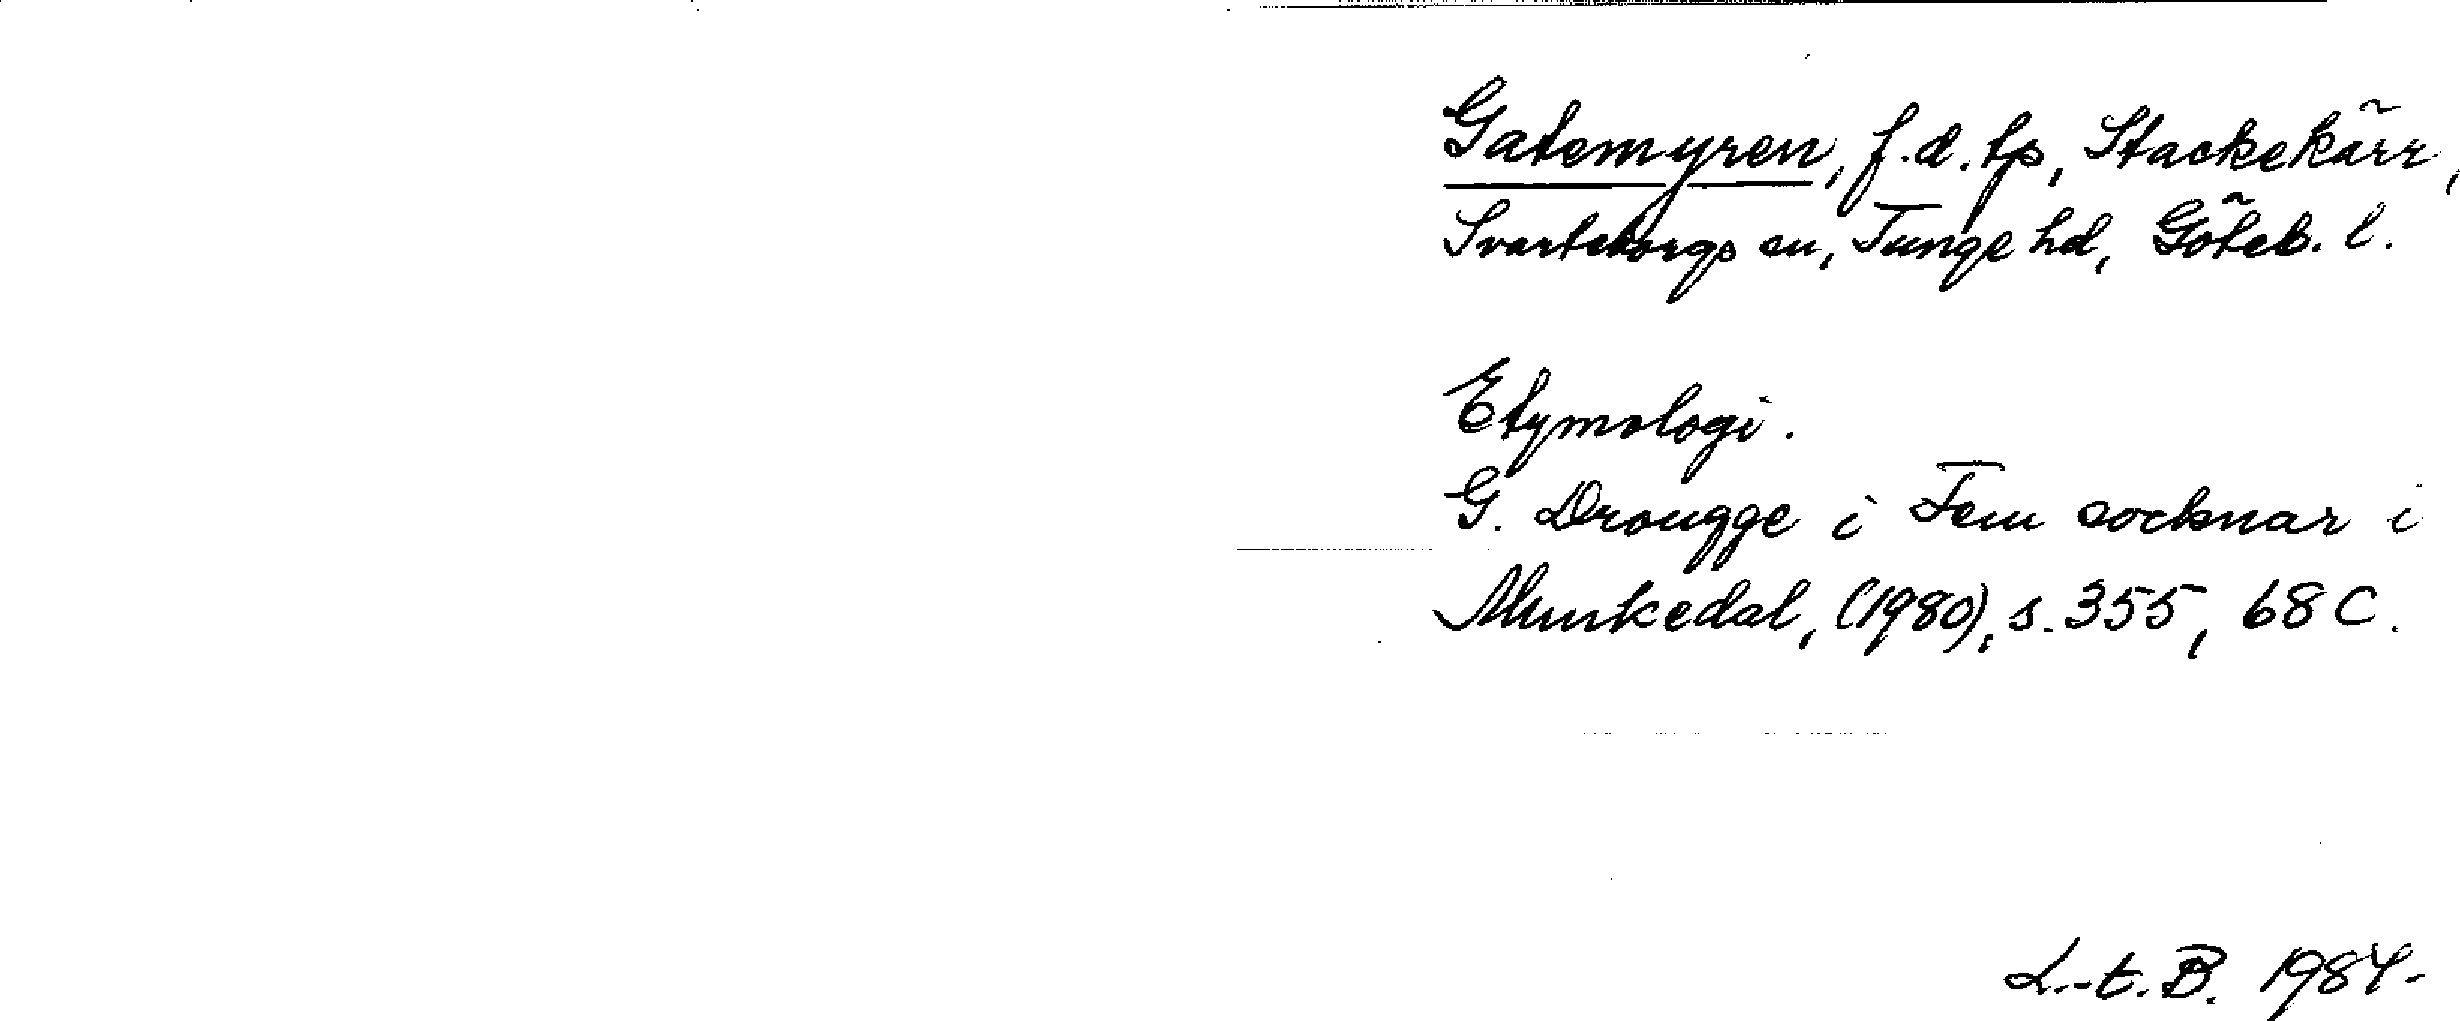 Gatemyren, f.d. tp, Stackekärr,
Svarteborgs sn, Tunge hd, Göteb. l.
Etymologi.
G. Drougge i Fem socknar i
Munkedal, (1980), s. 355, 68 C.
L.-E. B. 1984.